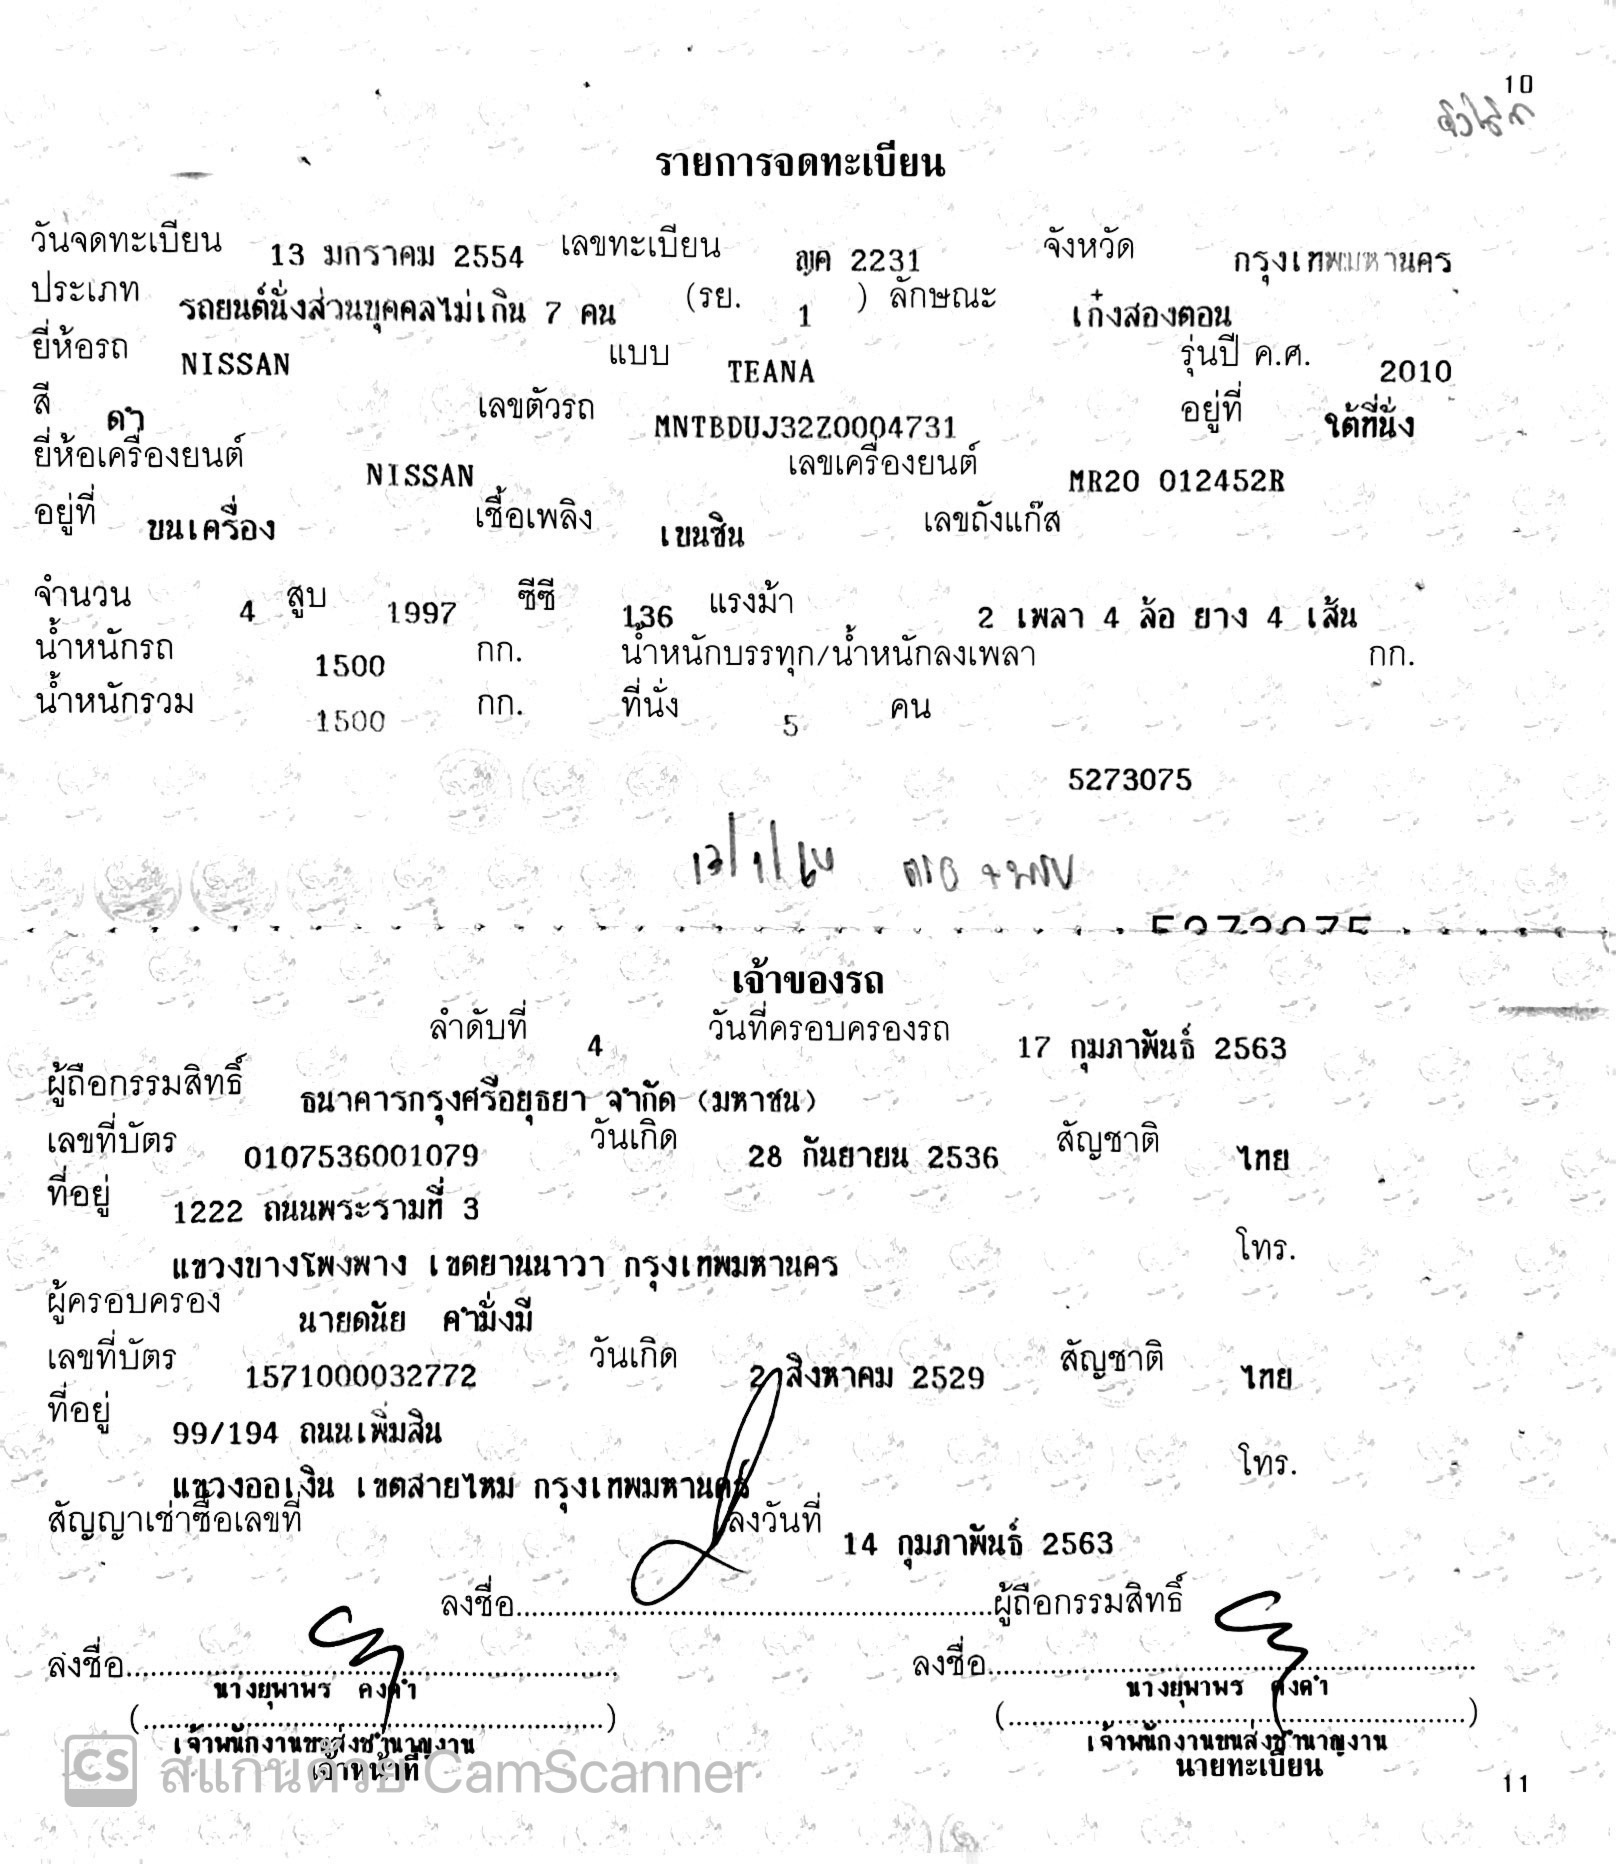 10
รายการจดทะเบียน
วันจดทะเบียน 13 มกราคม 2554 เลขทะเบียน ญค 2231 จังหวัด กรุงเทพมหานคร
ประเภท รถยนต์นั่งส่วนบุคคลไม่เกิน 7 คน (รย. 1 ) ลักษณะ เก๋งสองตอน
ยี่ห้อรถ NISSAN แบบ TEANA รุ่นปี ค.ศ. 2010
สี ดำ เลขตัวรถ MNTBDUJ32Z0004731 อยู่ที่ ใต้ที่นั่ง
ยี่ห้อเครื่องยนต์ NISSAN เลขเครื่องยนต์ MR20 012452R
อยู่ที่ บนเครื่อง เชื้อเพลิง เบนซิน เลขถังแก๊ส
จำนวน 4 สูบ 1997 ซีซี 136 แรงม้า 2 เพลา 4 ล้อ ยาง 4 เส้น
น้ำหนักรถ 1500 กก. น้ำหนักบรรทุก/น้ำหนักลงเพลา กก.
น้ำหนักรวม 1500 กก. ที่นั่ง 5 คน
5273075
13/1/64
5273075
เจ้าของรถ
ลำดับที่ 4 วันที่ครอบครองรถ 17 กุมภาพันธ์ 2563
ผู้ถือกรรมสิทธิ์ ธนาคารกรุงศรีอยุธยา จำกัด (มหาชน)
เลขที่บัตร 0107536001079 วันเกิด 28 กันยายน 2536 สัญชาติ ไทย
ที่อยู่ 1222 ถนนพระรามที่ 3
แขวงบางโพงพาง เขตยานนาวา กรุงเทพมหานคร โทร.
ผู้ครอบครอง นายดนัย คำมั่งมี
เลขที่บัตร 1571000032772 วันเกิด 2 สิงหาคม 2529 สัญชาติ ไทย
ที่อยู่ 99/194 ถนนเพิ่มสิน
แขวงออเงิน เขตสายไหม กรุงเทพมหานคร โทร.
สัญญาเช่าซื้อเลขที่ ลงวันที่ 14 กุมภาพันธ์ 2563
ลงชื่อ..........ผู้ถือกรรมสิทธิ์
ลงชื่อ.......... ลงชื่อ..........
นางยุพาพร คงคำ นางยุพาพร คงคำ
(..........) (..........)
เจ้าพนักงานขนส่งชำนาญงาน เจ้าพนักงานขนส่งชำนาญงาน
เจ้าหน้าที่ นายทะเบียน
CS สแกนด้วย CamScanner
11